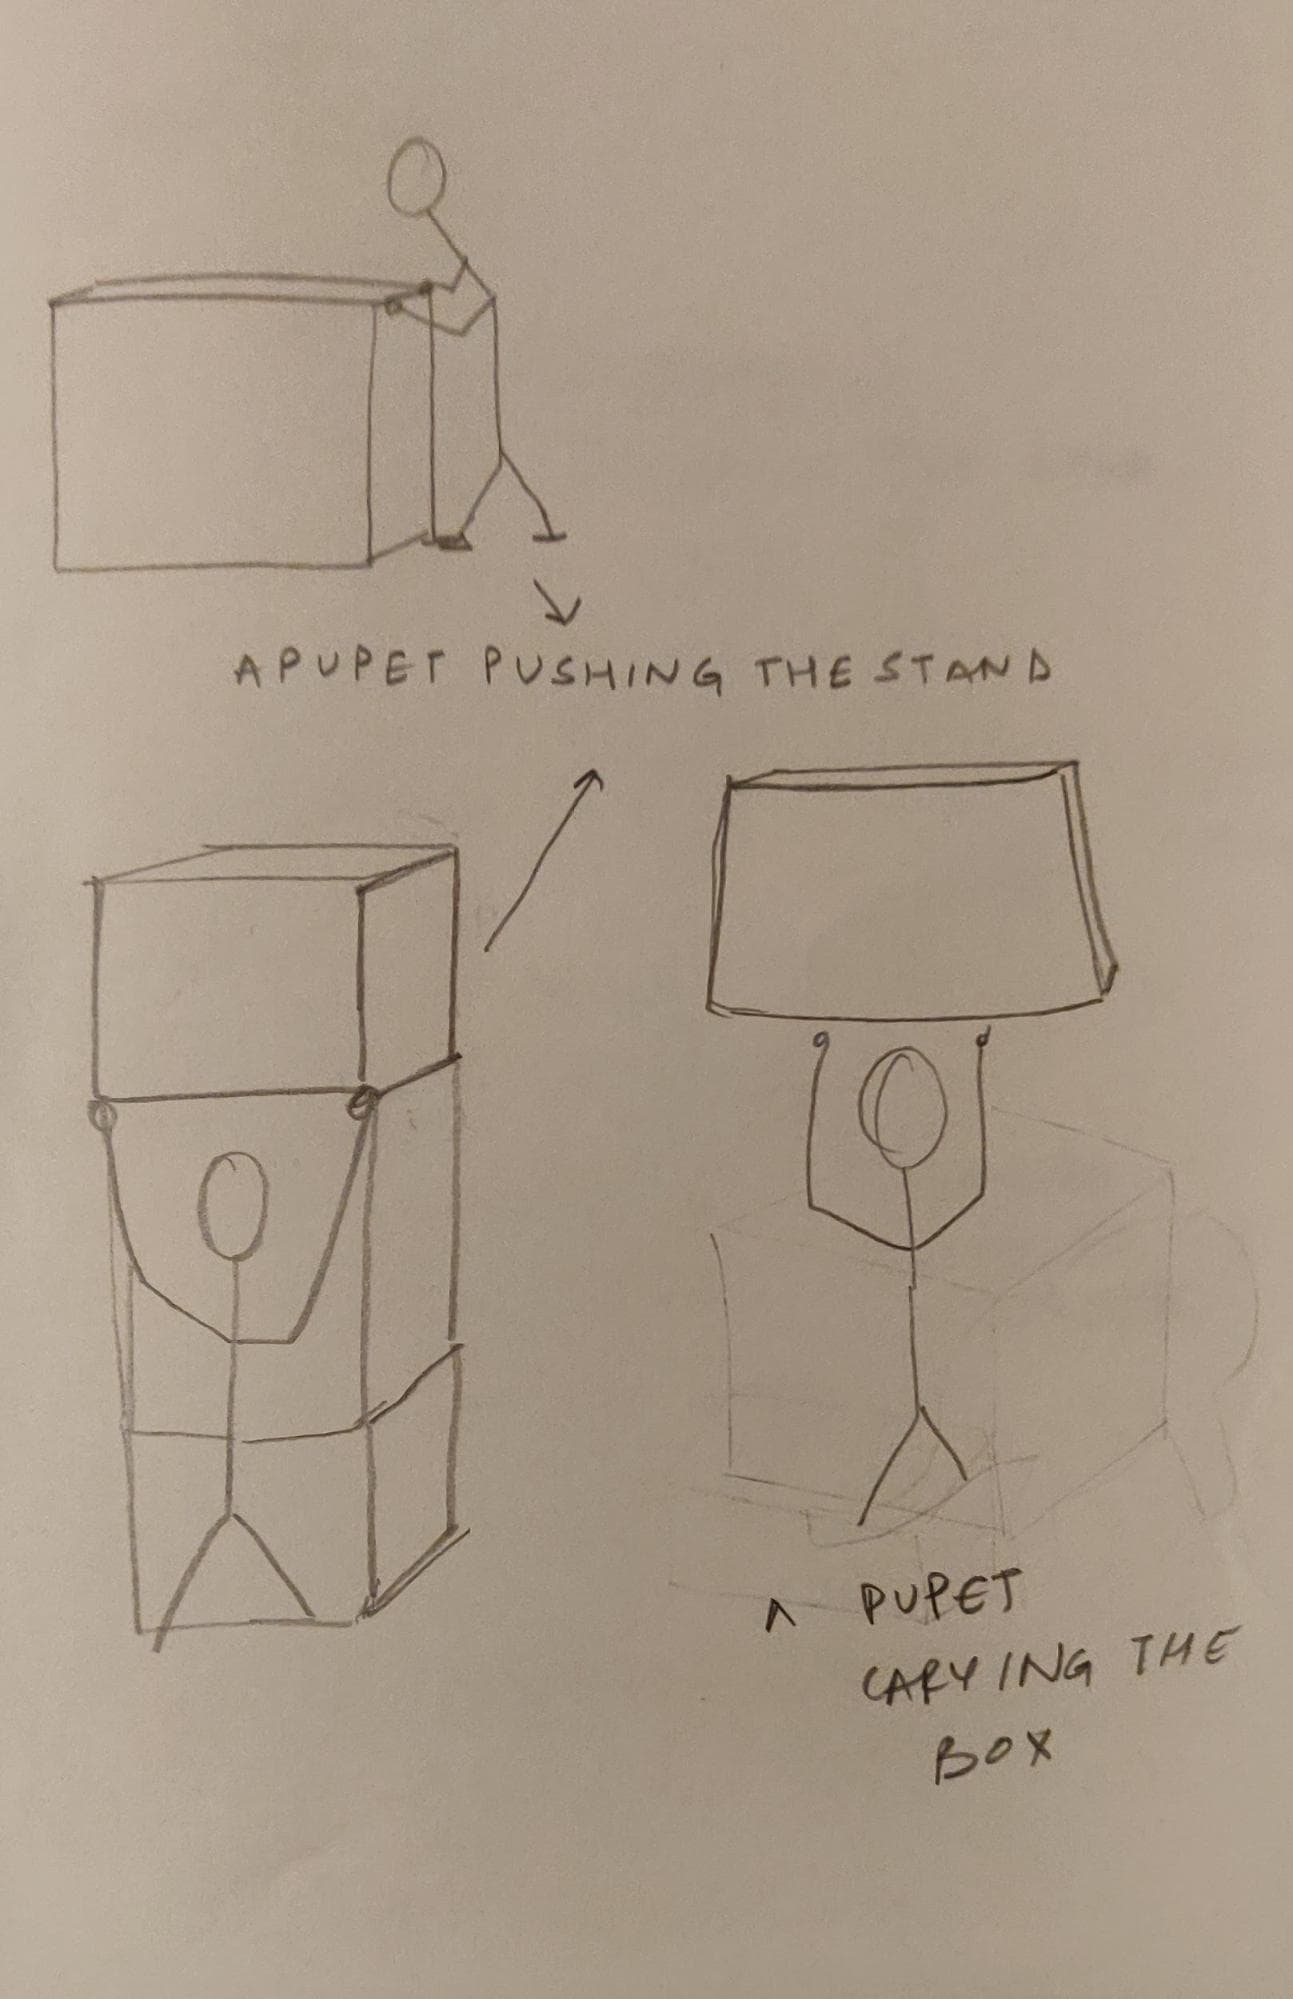 A PUPET PUSHING THE STAND
A PUPET
CARYING THE
BOX